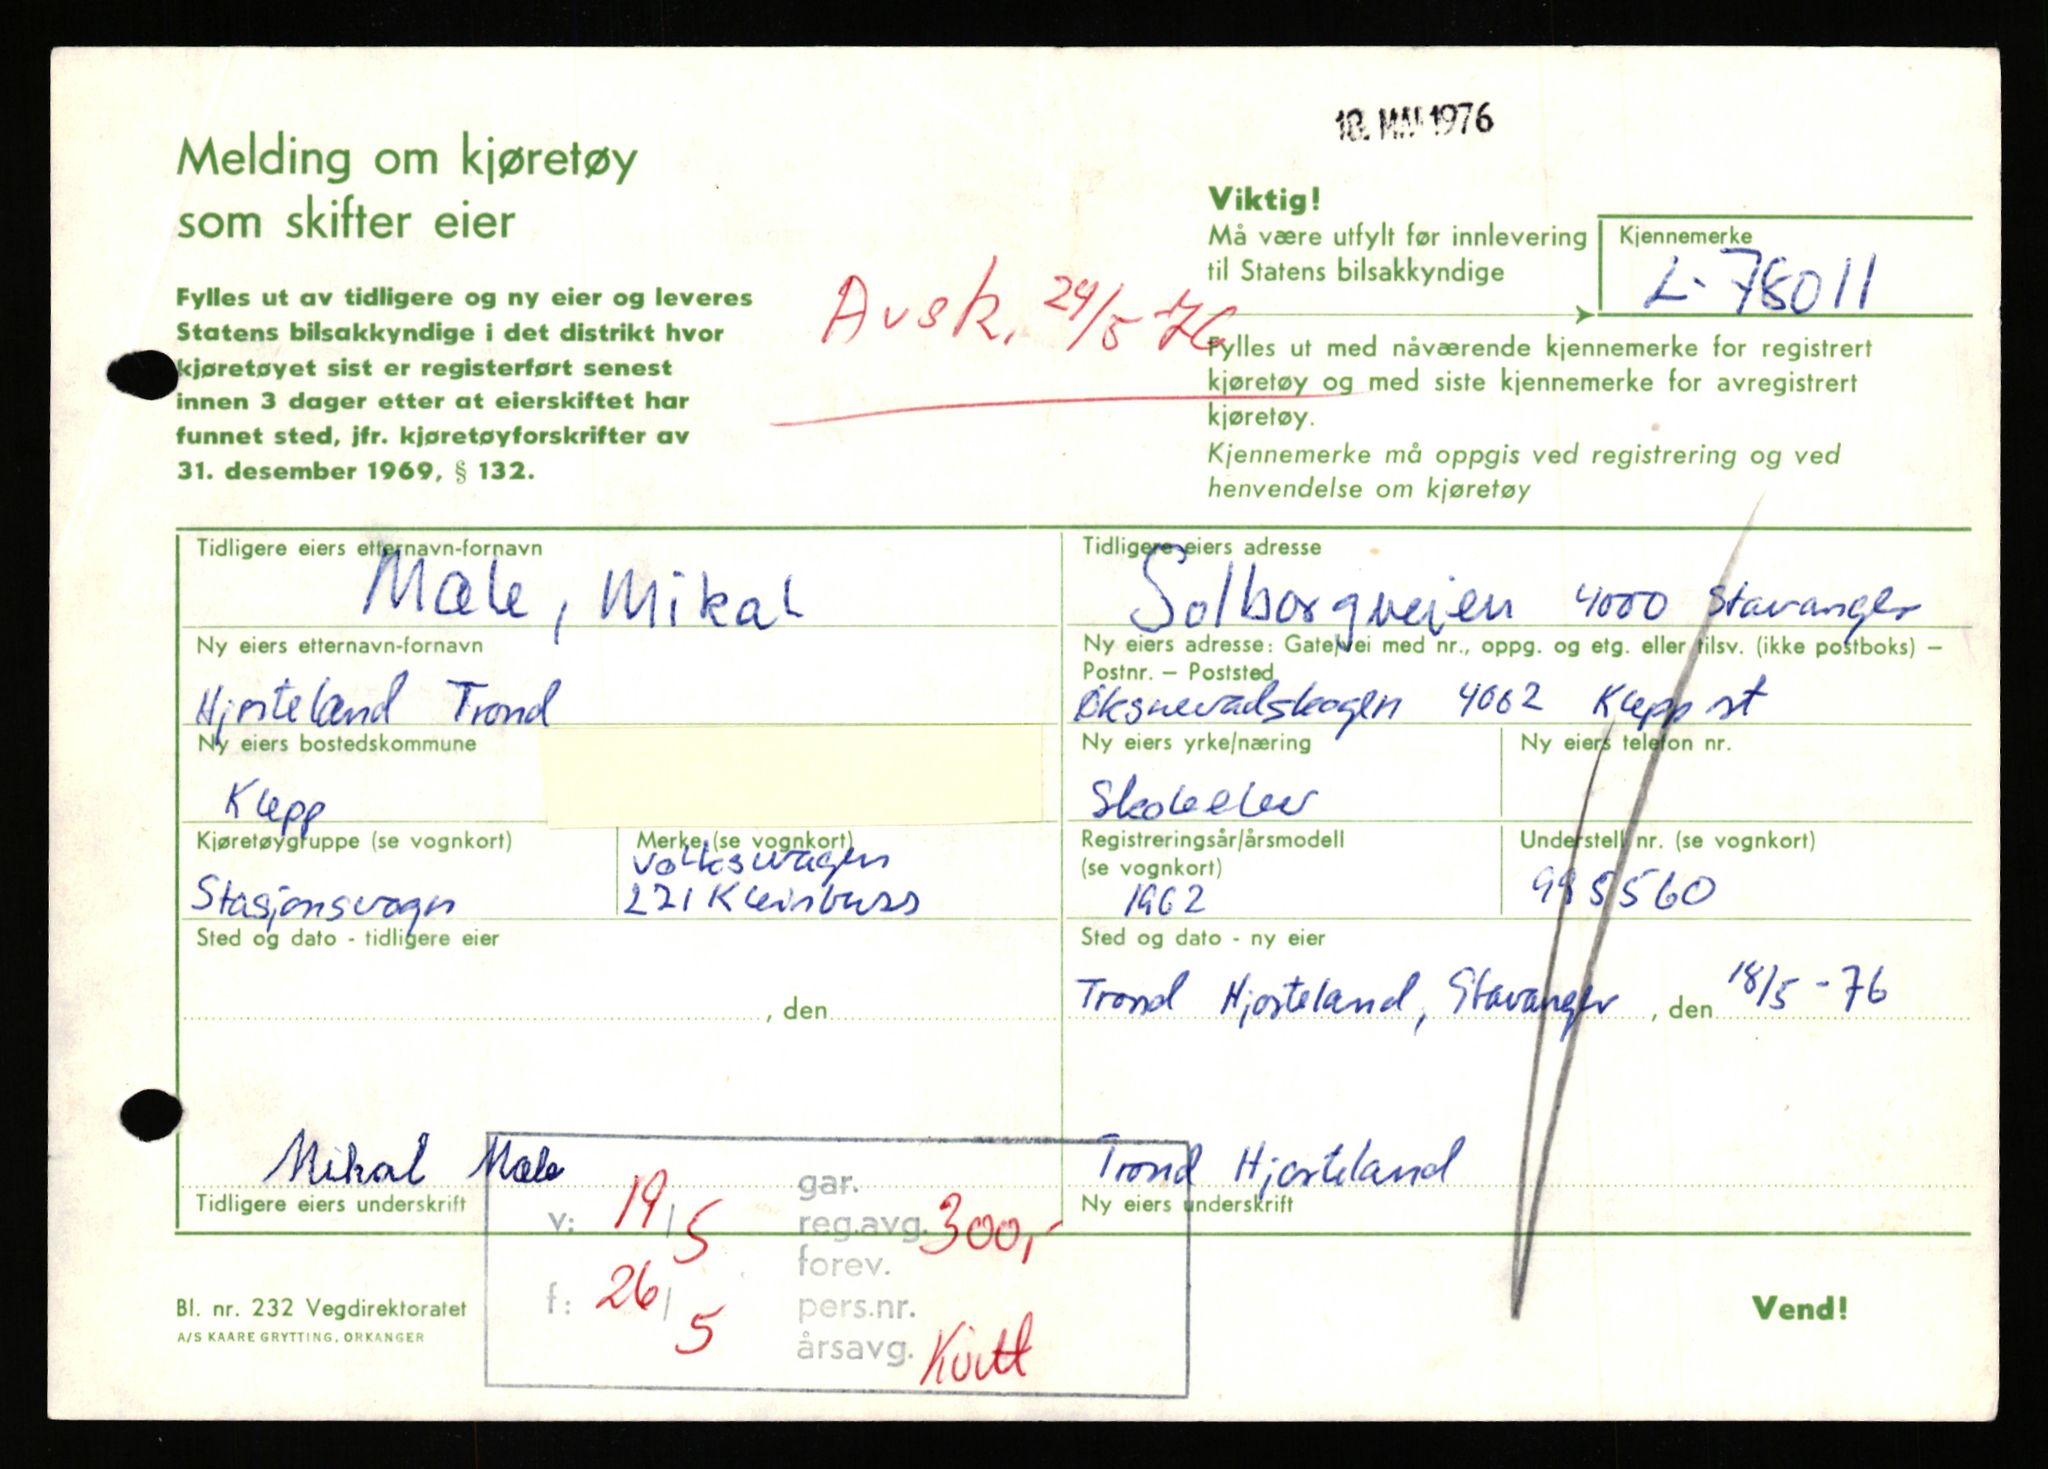 18. MAI 1976
Melding om kjøretøy
som skifter eier
Fylles ut av tidligere og ny eier og leveres
Statens bilsakkyndige i det distrikt hvor
kjøretøyet sist er registerført senest
innen 3 dager etter at eierskiftet har
funnet sted, jfr. kjøretøyforskrifter av
31. desember 1969, § 132.
Avsk. 24/5-76
Viktig!
Må være utfylt før innlevering
til Statens bilsakkyndige
Kjennemerke
L-78011
Fylles ut med nåværende kjennemerke for registrert
kjøretøy og med siste kjennemerke for avregistrert
kjøretøy.
Kjennemerke må oppgis ved registrering og ved
henvendelse om kjøretøy
Tidligere eiers etternavn-fornavn
Mæle, Mikal
Tidligere eiers adresse
Solborgveien 4000 Stavanger
Ny eiers etternavn-fornavn
Hjorteland Trond
Ny eiers adresse: Gate/vei med nr., oppg. og etg. eller tilsv. (ikke postboks) –
Postnr. – Poststed
Øksnevadskogen 4062 Klepp st
Ny eiers bostedskommune
Klepp
Ny eiers yrke/næring
Skoleelev
Ny eiers telefon nr.
Kjøretøygruppe (se vognkort)
Stasjonsvogn
Merke (se vognkort)
Volkswagen
221 Kleinbuss
Registreringsår/årsmodell
(se vognkort)
1962
Understell nr. (se vognkort)
995560
Sted og dato - tidligere eier
, den
Sted og dato - ny eier
Trond Hjorteland, Stavanger, den 18/5-76
Mikal Mæle
Tidligere eiers underskrift
Trond Hjorteland
Ny eiers underskrift
v: 19/5
f: 26/5
gar.
reg.avg. 300,-
forev.
pers.nr.
årsavg. Kvitt
Bl. nr. 232 Vegdirektoratet
A/S KAARE GRYTTING, ORKANGER
Vend!